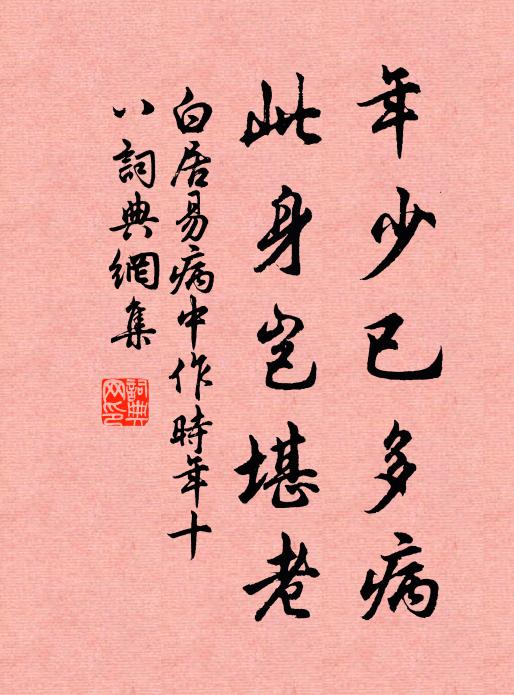 年少已多病
此身豈堪老
白居易病中作時年十
八詞典網集
詞典
网印